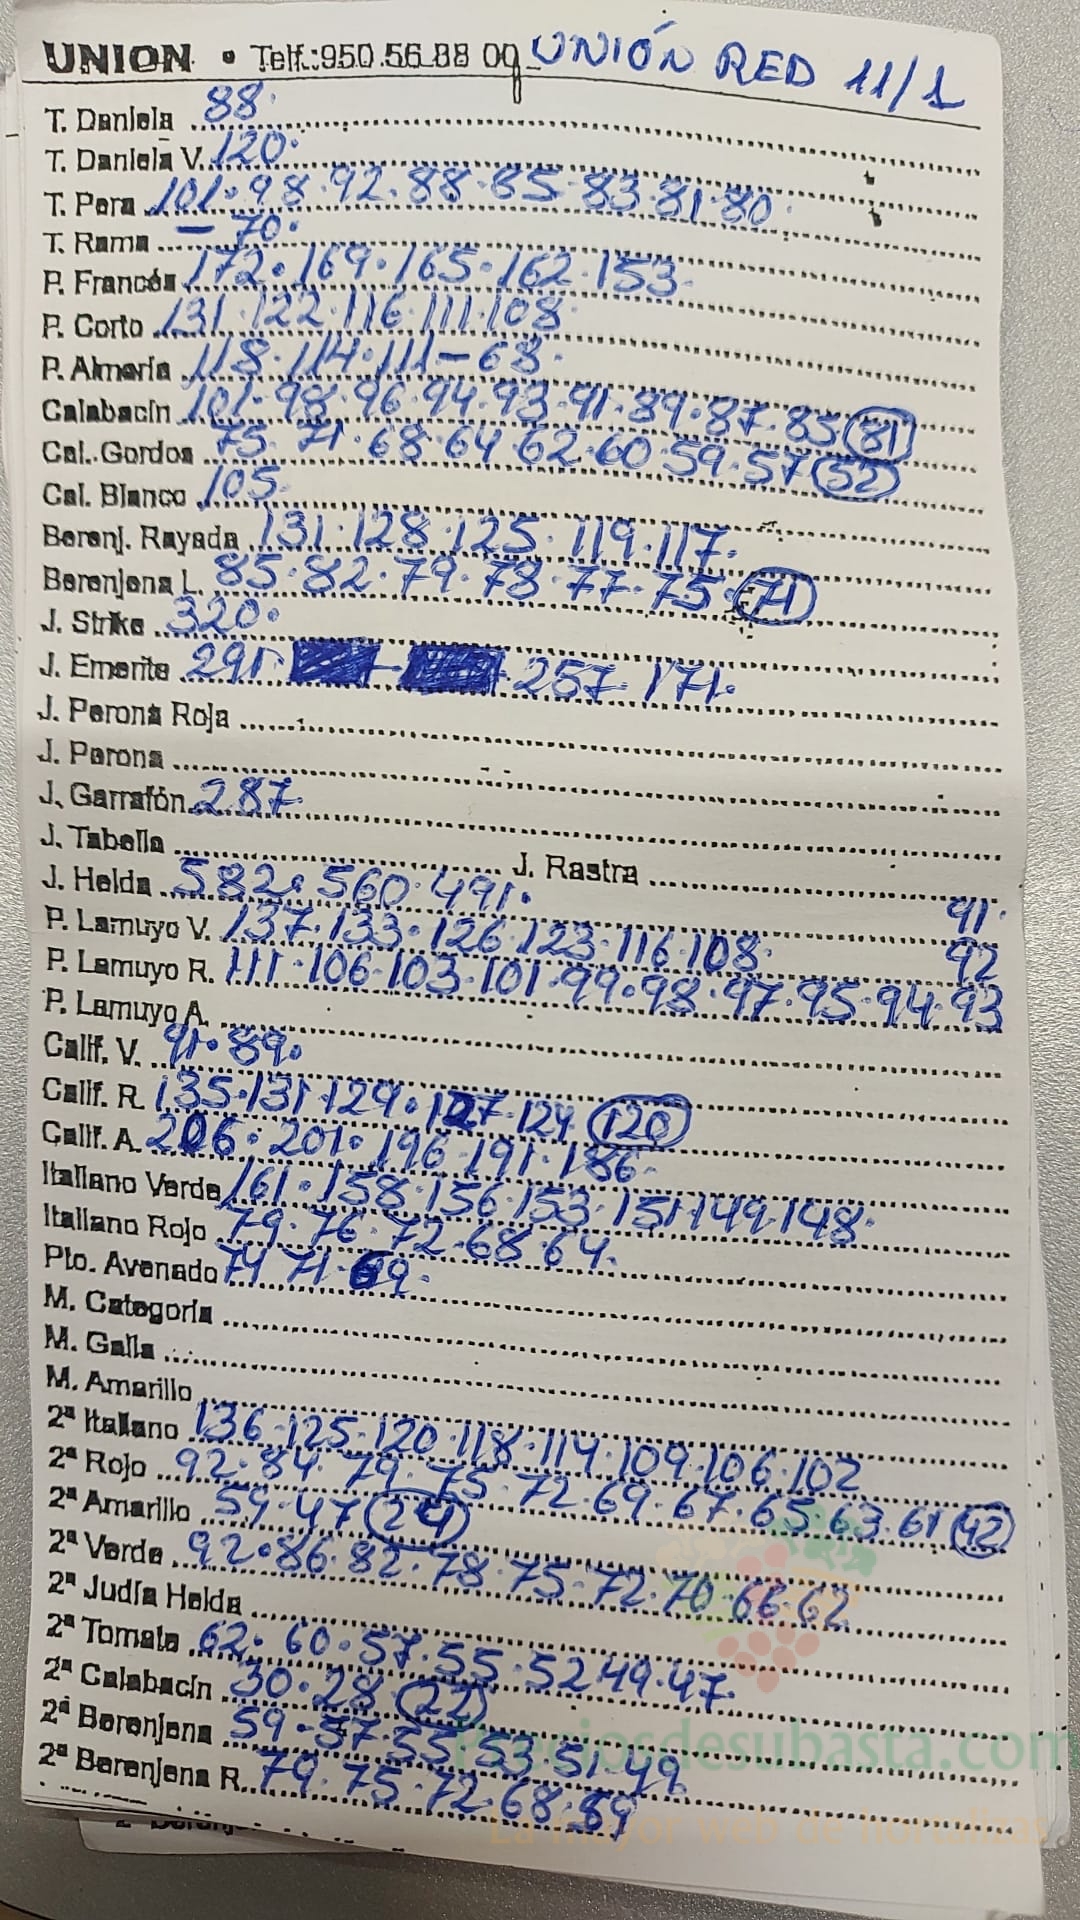 UNION • Telf.:950.56.88 00 UNIÓN RED 11/1
T. Daniela 88.
T. Daniela V. 120.
T. Pera 101. 98. 92. 88. 85. 83. 81. 80.
T. Rama – 70.
P. Francés 172. 169. 165. 162. 153.
P. Corto 131. 122. 116. 111. 108.
P. Almería 118. 114. 111 – 68.
Calabacín 101. 98. 96. 94. 93. 91. 89. 87. 85 81
Cal. Gordos 75. 71. 68. 64. 62. 60. 59. 57 52
Cal. Blanco 105.
Berenj. Rayada 131. 128. 125. 119. 117.
Berenjena L. 85. 82. 79. 78. 77. 75. 71
J. Strike 320.
J. Emerite 291. – 257. 171.
J. Perona Roja
J. Perona
J. Garrafón 287.
J. Tabella J. Rastra
J. Helda 582. 560. 491. 91.
P. Lamuyo V. 137. 133. 126. 123. 116. 108. 92
P. Lamuyo R. 111. 106. 103. 101. 99. 98. 97. 95. 94. 93
P. Lamuyo A.
Calif. V. 91. 89.
Calif. R. 135. 131. 129. 127. 124 120
Calif. A. 206. 201. 196. 191. 186.
Italiano Verde 161. 158. 156. 153. 151. 149. 148.
Italiano Rojo 79. 76. 72. 68. 64.
Pto. Avenado 74 71. 69.
M. Categoría
M. Galia
M. Amarillo
2ª Italiano 136. 125. 120. 118. 114. 109. 106. 102
2ª Rojo 92. 84. 79. 75. 72. 69. 67. 65. 63. 61 42
2ª Amarillo 59. 47 24
2ª Verde 92. 86. 82. 78. 75. 72. 70. 66. 62
2ª Judía Helda
2ª Tomate 62. 60. 57. 55. 52 49. 47.
2ª Calabacín 30. 28 22
2ª Berenjena 59. 57. 55. 53. 51. 49.
2ª Berenjena R. 79. 75. 72. 68. 59
Preciosdesubasta.com
La mayor web de hortalizas